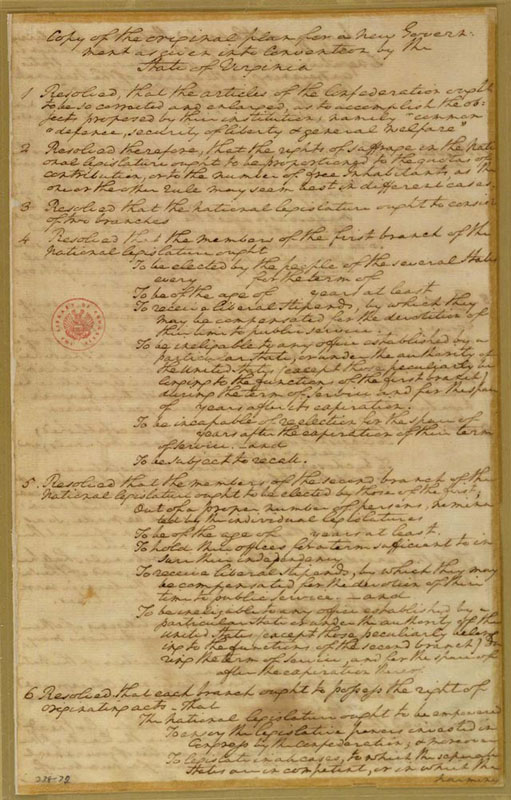 Copy of the original plan for a new Govern-
ment as given into Convention by the
State of Virginia
1 Resolved, that the articles of the Confederation ought
to be so corrected and enlarged, as to accomplish the ob-
jects proposed by their institution, namely "common
"defence, security of liberty & general welfare"
2 Resolved therefore, that the rights of suffrage in the Nati
onal legislature ought to be proportioned to the quotas of
contribution, or to the number of free Inhabitants, as the
one or the other rule may seem best in different cases.
3 Resolved that the national legislature ought to consist
of two branches
4 Resolved that the members of the first branch of the
National legislature ought
To be elected by the people of the several States
every for the term of
To be of the age of years at least
To receive liberal stipends, by which they
may be compensated for the devotion of
their time to public service.
To be ineligible to any office established by a
particular State, or under the authority of
the United States (except those peculiarly be
longing to the functions of the first branch)
during the term of service and for the space
of years after its expiration.
To be incapable of reelection for the space of
years after the expiration of their term
of service. and
To be subject to recall.
5. Resolved that the members of the second branch of the
National legislature ought to be elected by those of the first,
Out of a proper number of persons, nomina
ted by the individual legislatures
To be of the age of years at least.
To hold their offices for a term sufficient to in
sure their independency
To receive liberal stipends, by which they may
be compensated for the devotion of their
time to public service. and
To be ineligible to any office established by a
particular State or under the authority of the
United States (except those peculiarly belong
ing to the functions of the second branch) du
ring the term of service, and for the space of
after the expiration
6. Resolved that each branch ought to possess the right of
originating acts - That
The national legislature ought to be empowered
To enjoy the legislative powers invested in
Congress by the Confederation; & moreover
To legislate in all cases, to which the separate
States are incompetent, or in which the
harmony